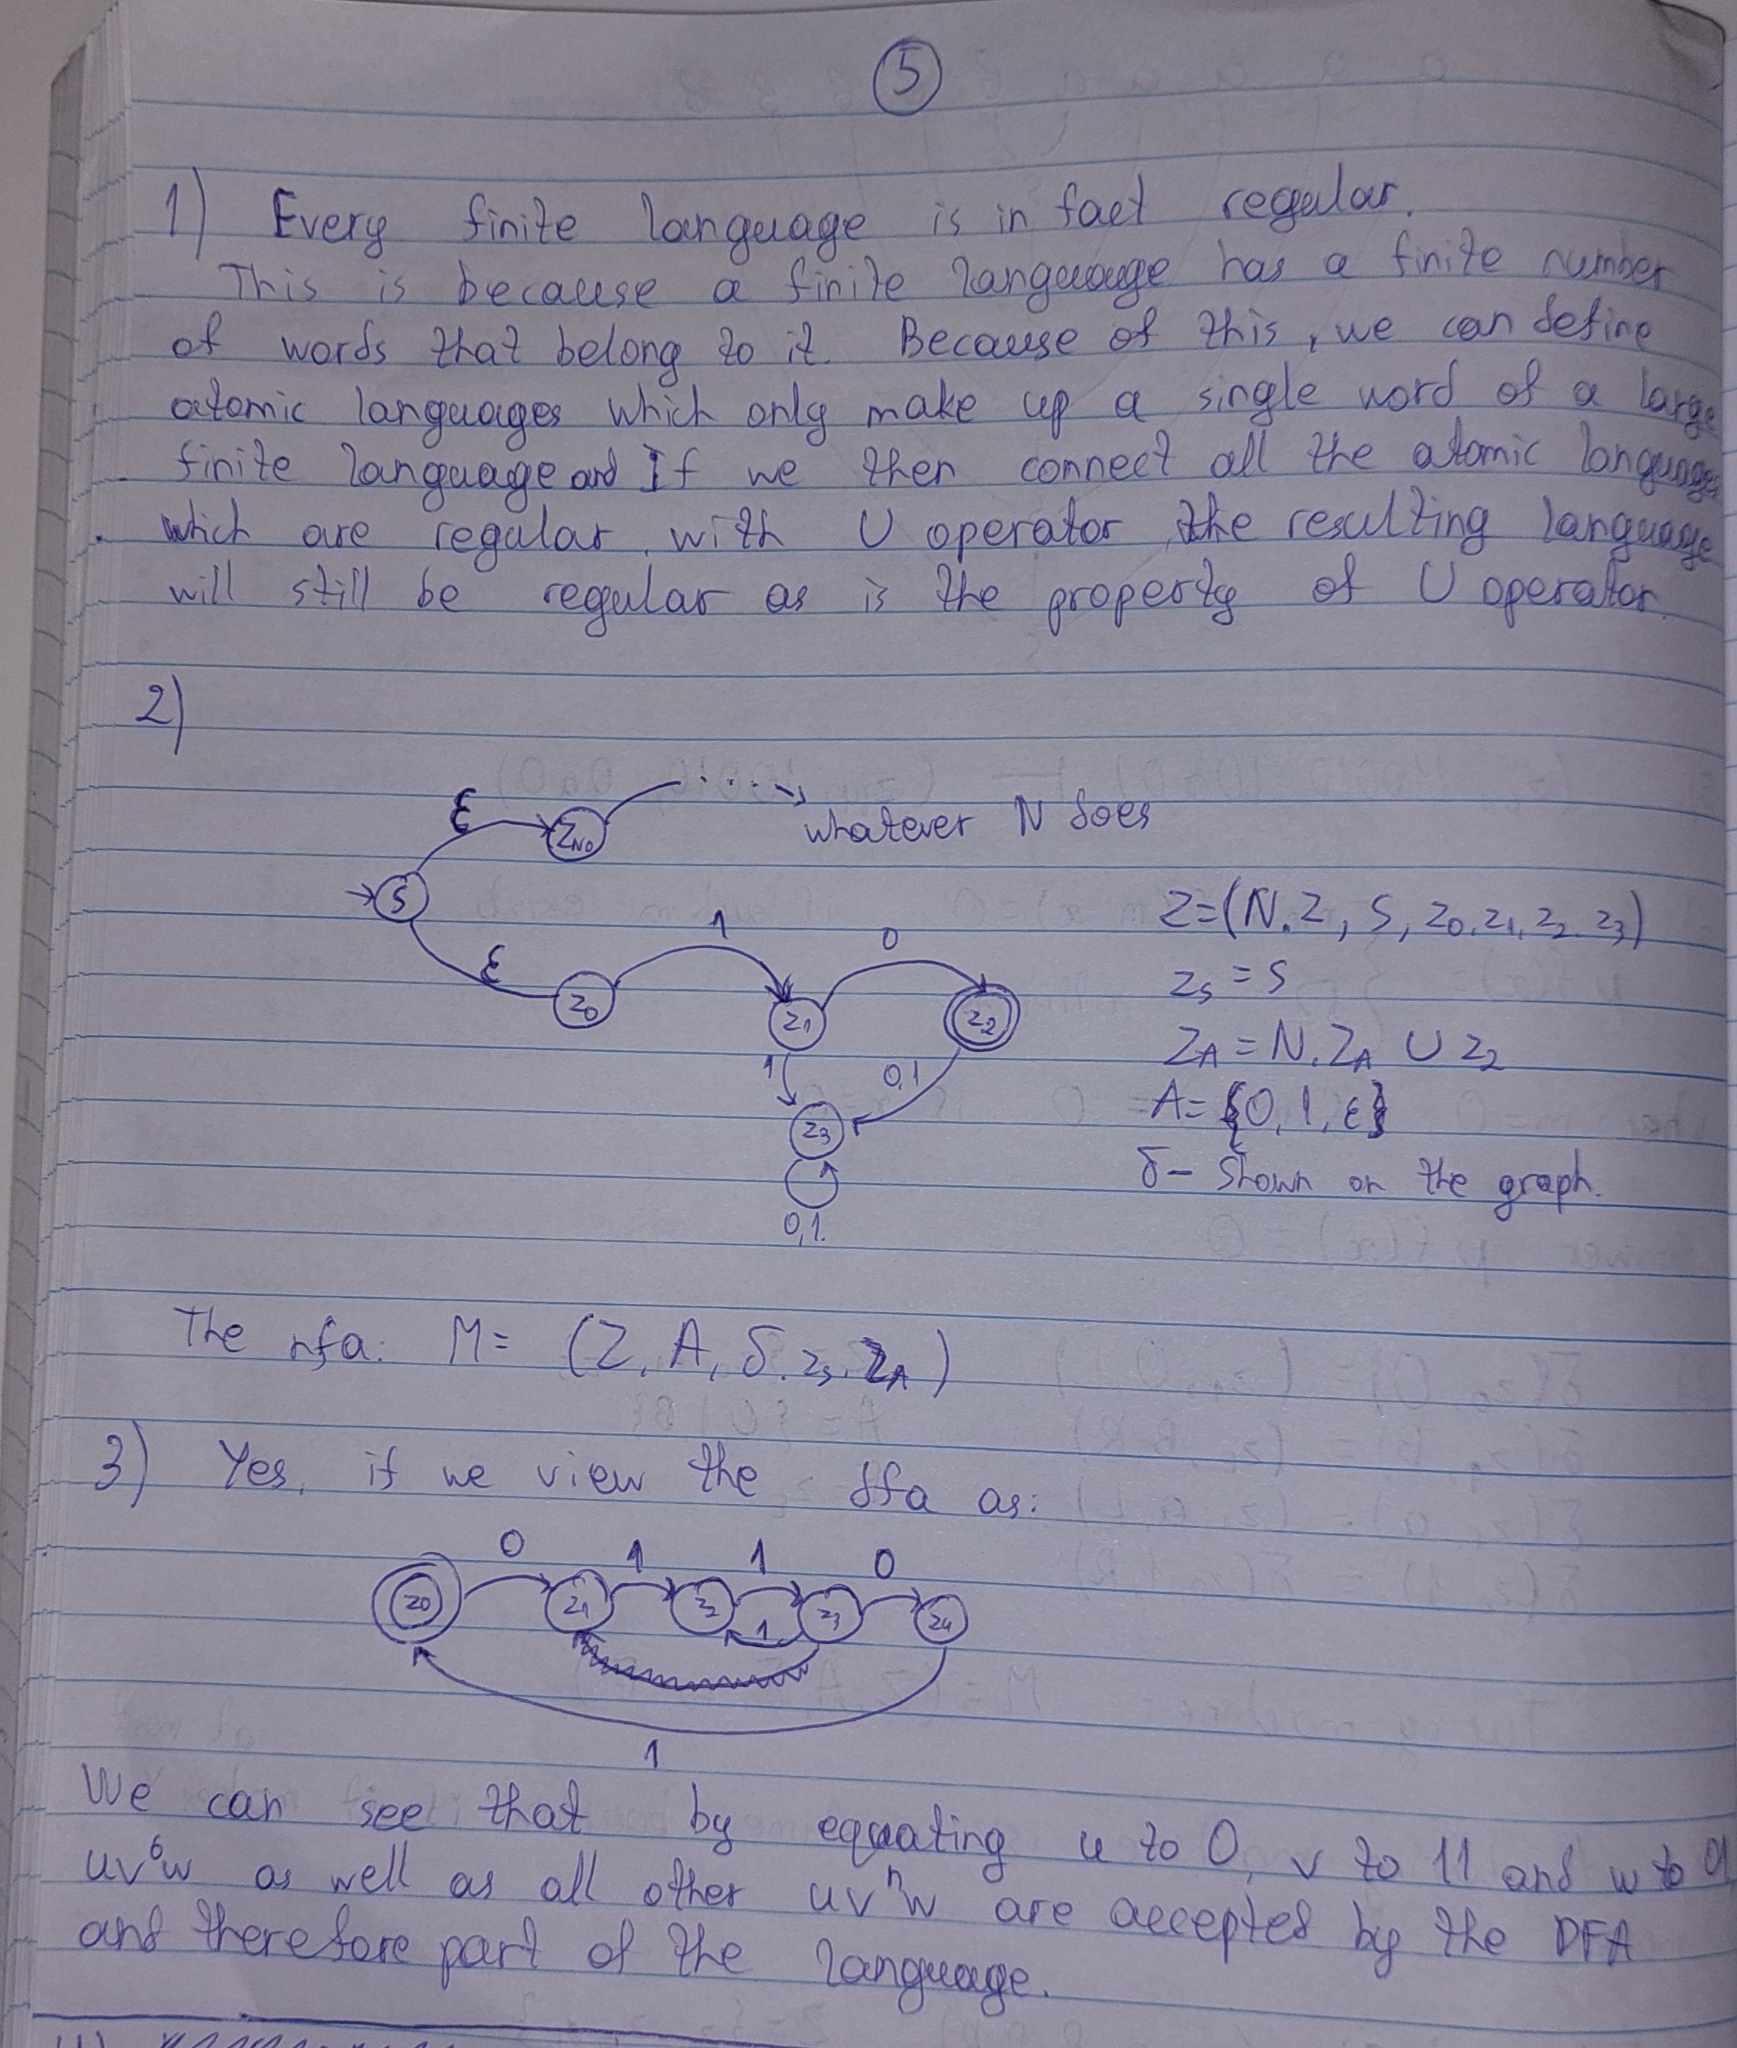 5
1) Every finite language is in fact regular.
This is because a finite language has a finite number
of words that belong to it. Because of this, we can define
atomic languages which only make up a single word of a large
finite language and If we then connect all the atomic language
which are regular, with U operator, the resulting language
will still be regular as is the property of U operator.
2)
ε
Z_N0
whatever N does
S
1
0
ε
z0
z1
z2
1
0,1
z3
0,1.
Z=(N.Z, S, z0, z1, z2, z3)
zs = S
ZA = N.ZA U z2
A= {0, 1, ε}
δ- Shown on the graph.
The nfa: M= (Z, A, δ, zs, ZA)
3) Yes, if we view the dfa as:
0
1
1
0
z0
z1
z2
z3
z4
1
1
We can see that by equating u to 0, v to 11 and w to 01
uv⁶w as well as all other uvⁿw are accepted by the DFA
and therefore part of the language.